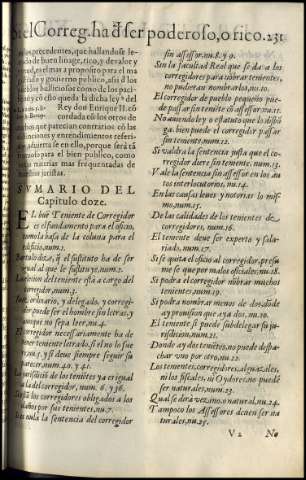 el Correg. ha d̃ ser poderoso, o rico. 231
precedentes, que hallandose le-
de buen linage, rico, y de valor y
es el mas a proposito para el ma
y gouierno publico, assi en los
los bellicosos como de los paci-
y cõ esto queda la dicha ley
Rey don Enrique II. cõ
cordada cõ los otros de
que parecian contrarios en las
y entendimientos referi-
aduierta se en ello, porque será tã
para el bien publico, como
narratias mas frequentadas de
juristas.
SVMARIO DEL
Capitulo doze.
EL bũe Teniente de Corregidor
es el fundamento para el oficio,
como la basa de la coluna para el
edificio, num. 1.
dize, q̃ el sustituto ha de ser
igual al que le sustituye, num. 2.
eleccion del teniente está a cargo del
corregidor, num. 3.
ordinario, y delegado, y corregi-
puede ser el hombre sin letras, y
no sepa leer, nu. 4.
El corregidor necessariamente ha de
tener teniente letrado, si el no lo fue
re, nu. 5. y si deue siempre seguir su
parecer, num. 40. y 41.
La jurisdicion de los teniẽtes ya es igual
a la del corregidor, num. 6. y 36.
Si los corregidores obligados a los
daños por sus tenientes, nu. 7.
Es nula la sentencia del corregidor
sin assessor, nu. 8. y 9.
Sin la facultad Real que se da a los
corregidores para nõbrar tenientes,
no pudieran nombrarlos, nu. 10.
El corregidor de pueblo pequeño pue-
de passar sin teniẽte o assessor, nu. 11.
No auiendo ley o estatuto que lo dispõ
ga. bien puede el corregidor passar
sin teniente, num. 12.
Si valdra la sentencia injusta que el co-
rregidor diere sin teniente, num. 13.
Vale la sentencia sin assessor en los au-
tos interlocutorios, nu. 14.
En las causas leues y notorias lo mis-
mo, num. 15.
De las calidades de los tenientes de
corregidores, num. 16.
El teniente deue ser experto y sala-
riado, num. 17.
Si se quita el oficio al corregidor, presu
me se que por malos oficiales, nu. 18.
Si podra el corregidor nõbrar muchos
tenientes, num. 19.
Si podra nombrar menos de dos, dõde
ay prouision que aya dos, nu. 20.
El teniente si puede subdelegar su ju-
risdicion, num. 21.
Donde ay dos teniẽtes, no puede despa-
char vno por otro, nu. 22.
Los tenientes, corregidores, alguaziles,
ni los fiscales, ni Oydores, no puedẽ
ser naturales, num. 23.
Qual se dira vezino, o natural, nu. 24.
Tampoco los Assessores deuen ser na-
turales, nu. 25.
V 2 No